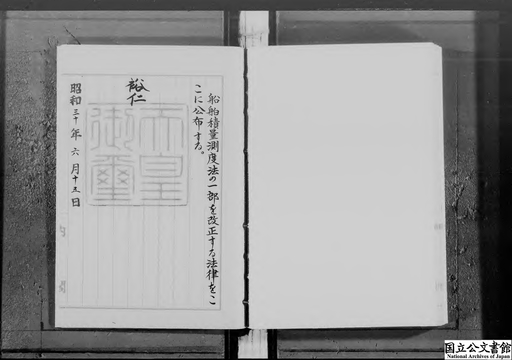 船舶積量測度法の一部を改正する法律をこ
こに公布する。
裕仁
天皇
御璽
昭和三十年六月十三日
国立公文書館
National Archives of Japan